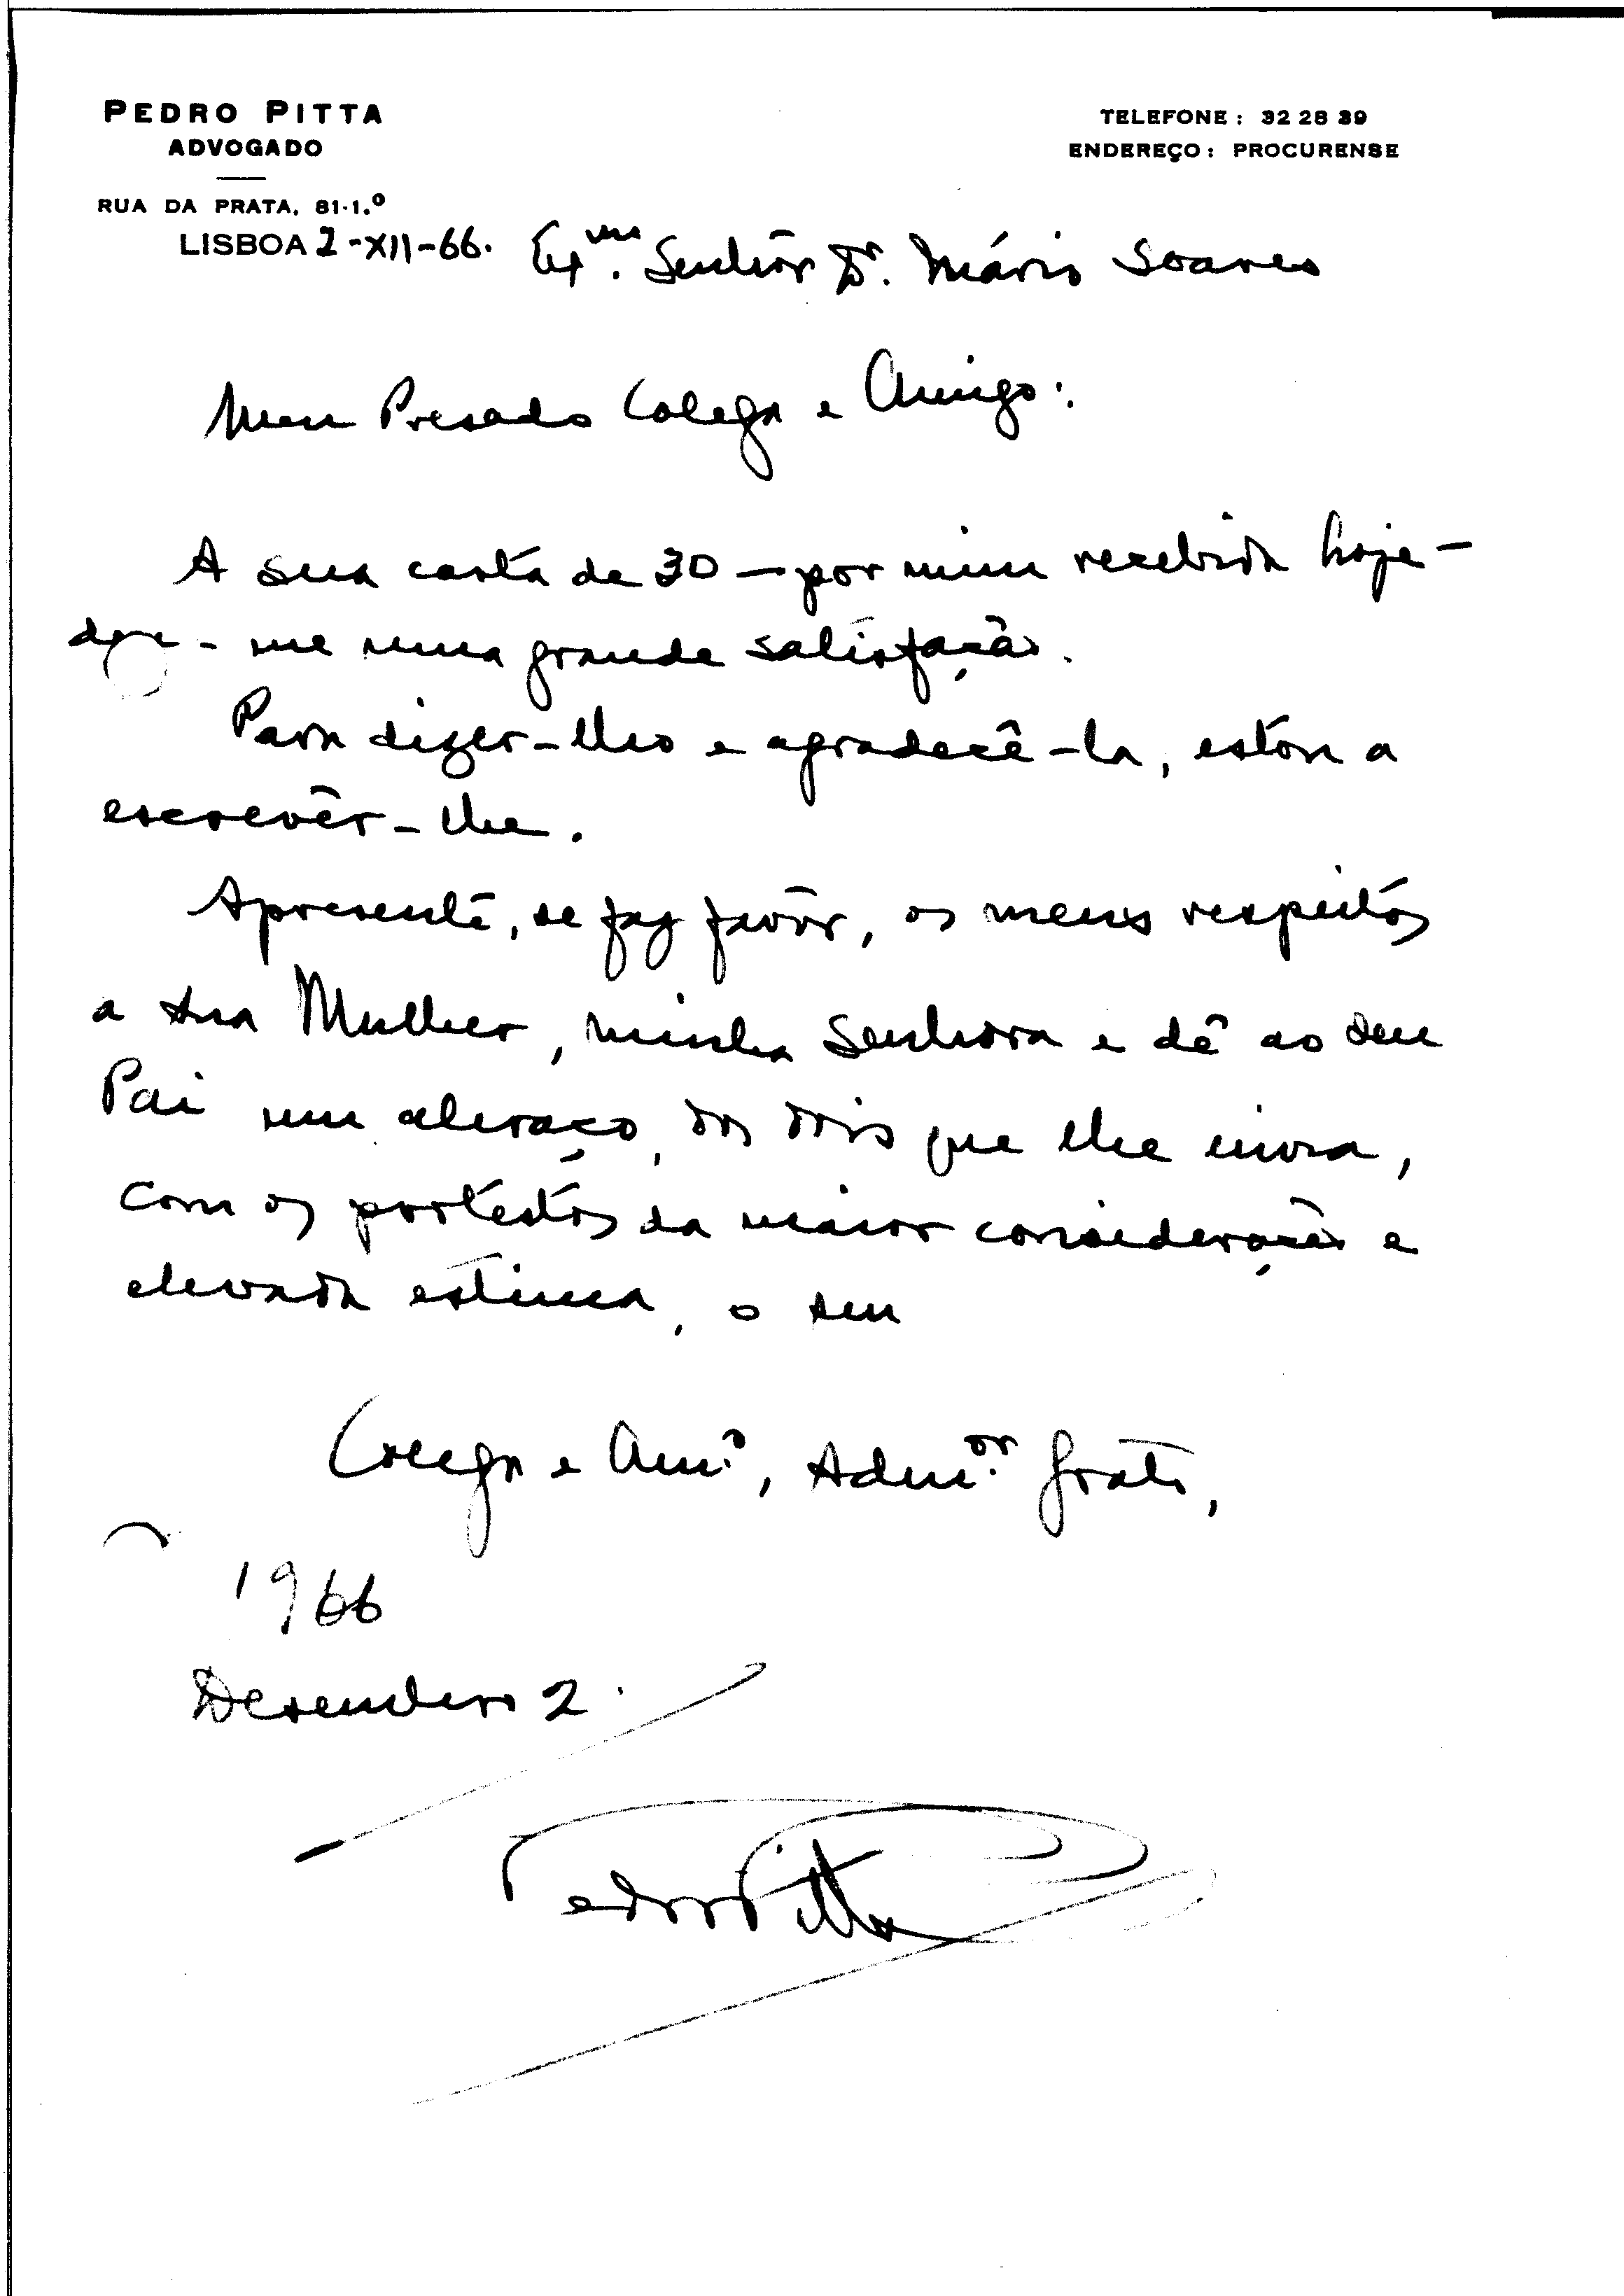 PEDRO PITTA
ADVOGADO
RUA DA PRATA, 81-1.º
LISBOA 2-XII-66.
TELEFONE: 32 28 39
ENDEREÇO: PROCURENSE
Exmo. Senhôr Dr. Mário Soares
Meu Presado Colega e Amigo:
A sua carta de 30 — por mim recebida hoje —
deu-me uma grande satisfação.
Para dizer-lho e agradecê-la, estou a
escrevêr-lhe.
Apresente, se faz favôr, os meus respeitos
a sua Mulher, minha Senhora e dê ao seu
Pai um abraço, dos dois que lhe envia,
com os protestos da maior consideração e
elevada estima, o seu
Colega e Am.º, Adm.or grato,
1966
Desembro 2.
Pedro Pitta